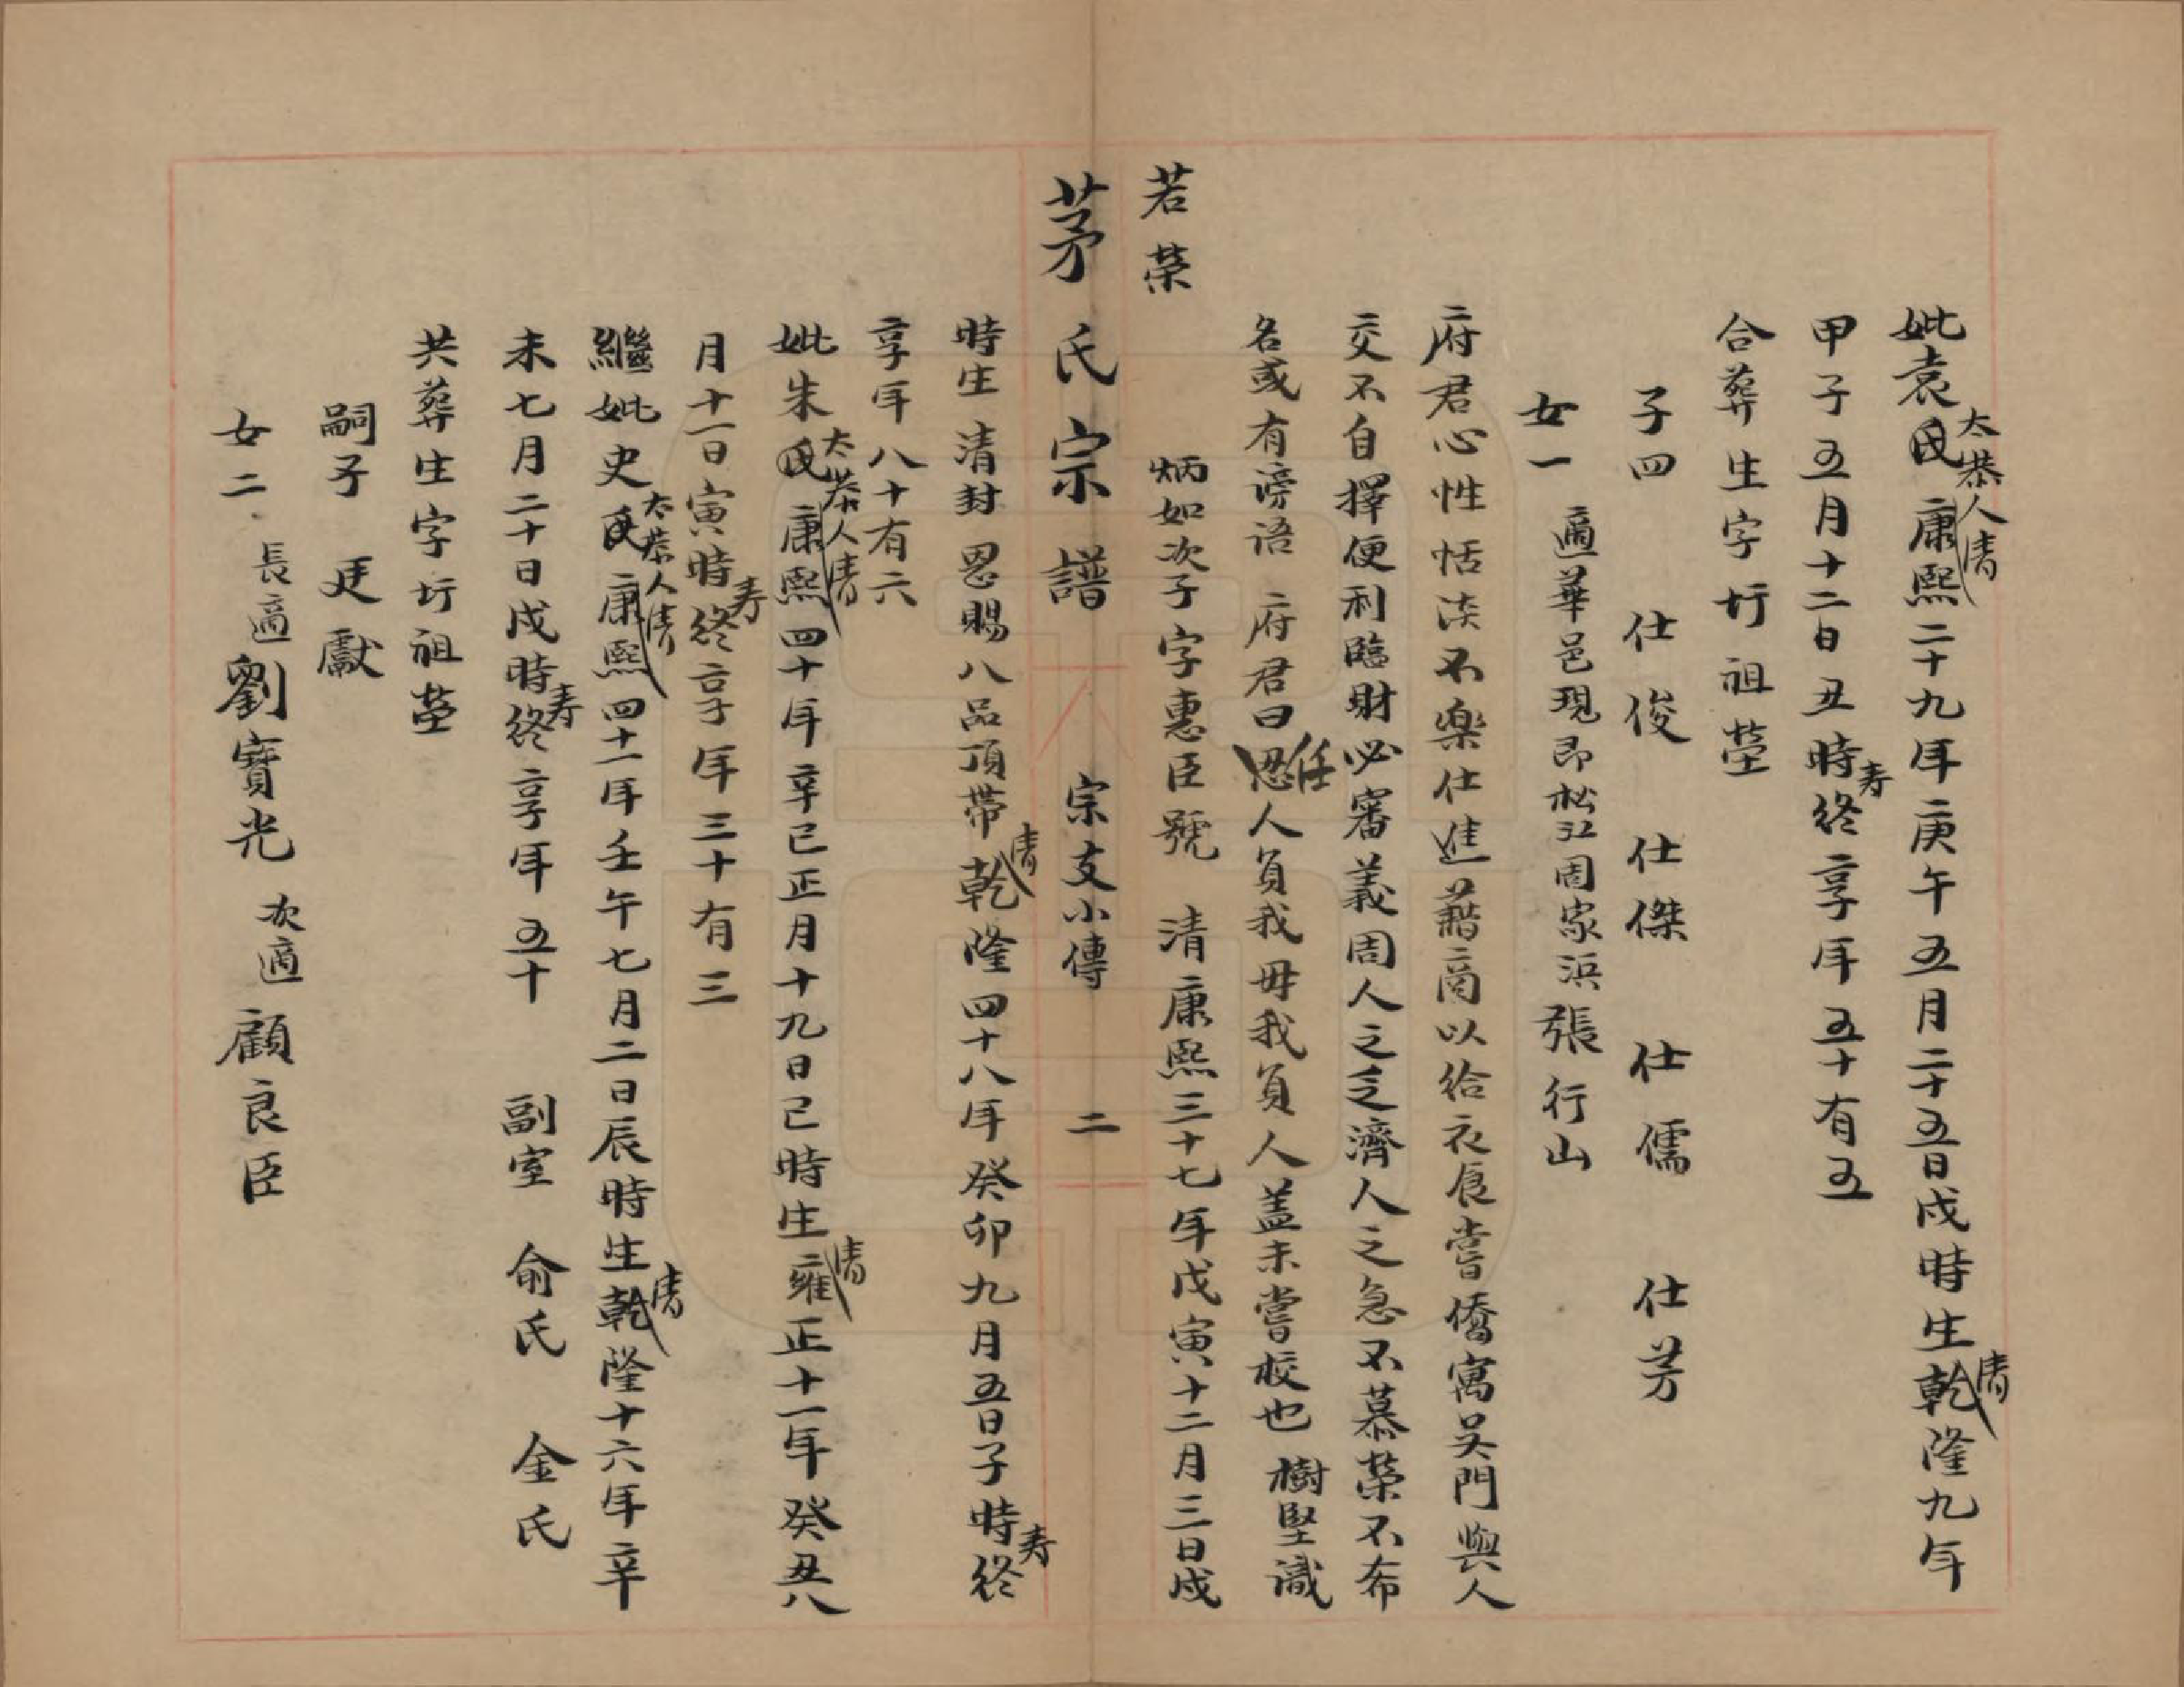 妣袁氏太恭人清康熙二十九年庚午五月二十五日戌時生清乾隆九年
甲子五月十二日丑時寿終享年五十有五
合葬生字圩祖塋
子四 仕俊 仕傑 仕儒 仕芳
女一 適華邑現即松江周家浜張行山
府君心性恬淡不樂仕進藉商以給衣食嘗僑寓吴門與人
交不自擇便利臨財必審義周人之乏濟人之急不慕榮不布
名或有謗語 府君曰任人負我毋我負人盖未嘗校也 樹堅識
若榮 炳如次子字惠臣號 清康熙三十七年戊寅十二月三日戌
茅氏宗譜 宗支小傳 二
時生 清封 恩賜八品頂帶清乾隆四十八年癸卯九月五日子時寿終
享年八十有六
妣朱氏太恭人清康熙四十年辛巳正月十九日巳時生清雍正十一年癸丑八
月十一日寅時寿終享年三十有三
繼妣史氏太恭人清康熙四十一年壬午七月二日辰時生清乾隆十六年辛
未七月二十日戌時寿終享年五十 副室 俞氏 金氏
共葬生字圩祖塋
嗣子 廷獻
女二 長適劉寶光 次適顧良臣